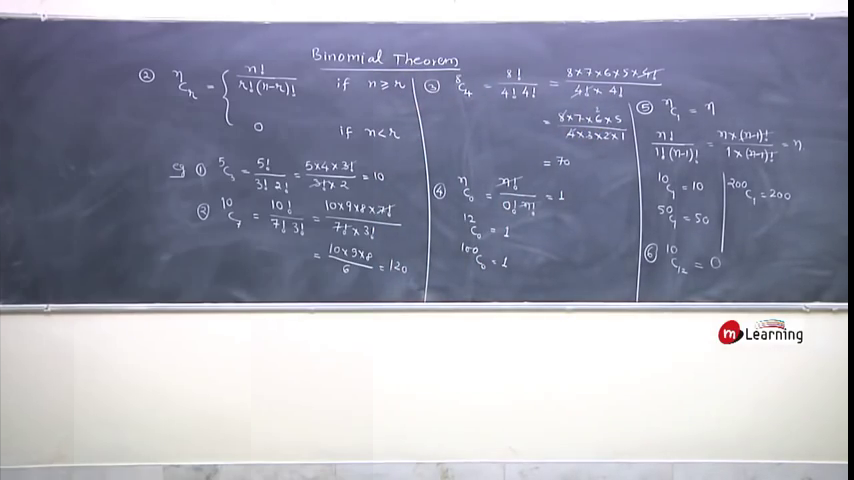 Binomial Theorem
② ⁿCᵣ = { n! / r!(n-r)! if n ≥ r
0 if n < r
eg ① ⁵C₃ = 5! / 3! 2! = 5×4×3! / 3!×2 = 10
② ¹⁰C₇ = 10! / 7! 3! = 10×9×8×7! / 7!×3!
= 10×9×8 / 6 = 120
③ ⁸C₄ = 8! / 4! 4! = 8×7×6×5×4! / 4!×4!
= 8×7×6×5 / 4×3×2×1
= 70
④ ⁿC₀ = n! / 0! n! = 1
¹²C₀ = 1
¹⁰⁰C₀ = 1
⑤ ⁿC₁ = n
n! / 1!(n-1)! = n×(n-1)! / 1×(n-1)! = n
¹⁰C₁ = 10
⁵⁰C₁ = 50
²⁰⁰C₁ = 200
⑥ ¹⁰C₁₂ = 0
m Learning